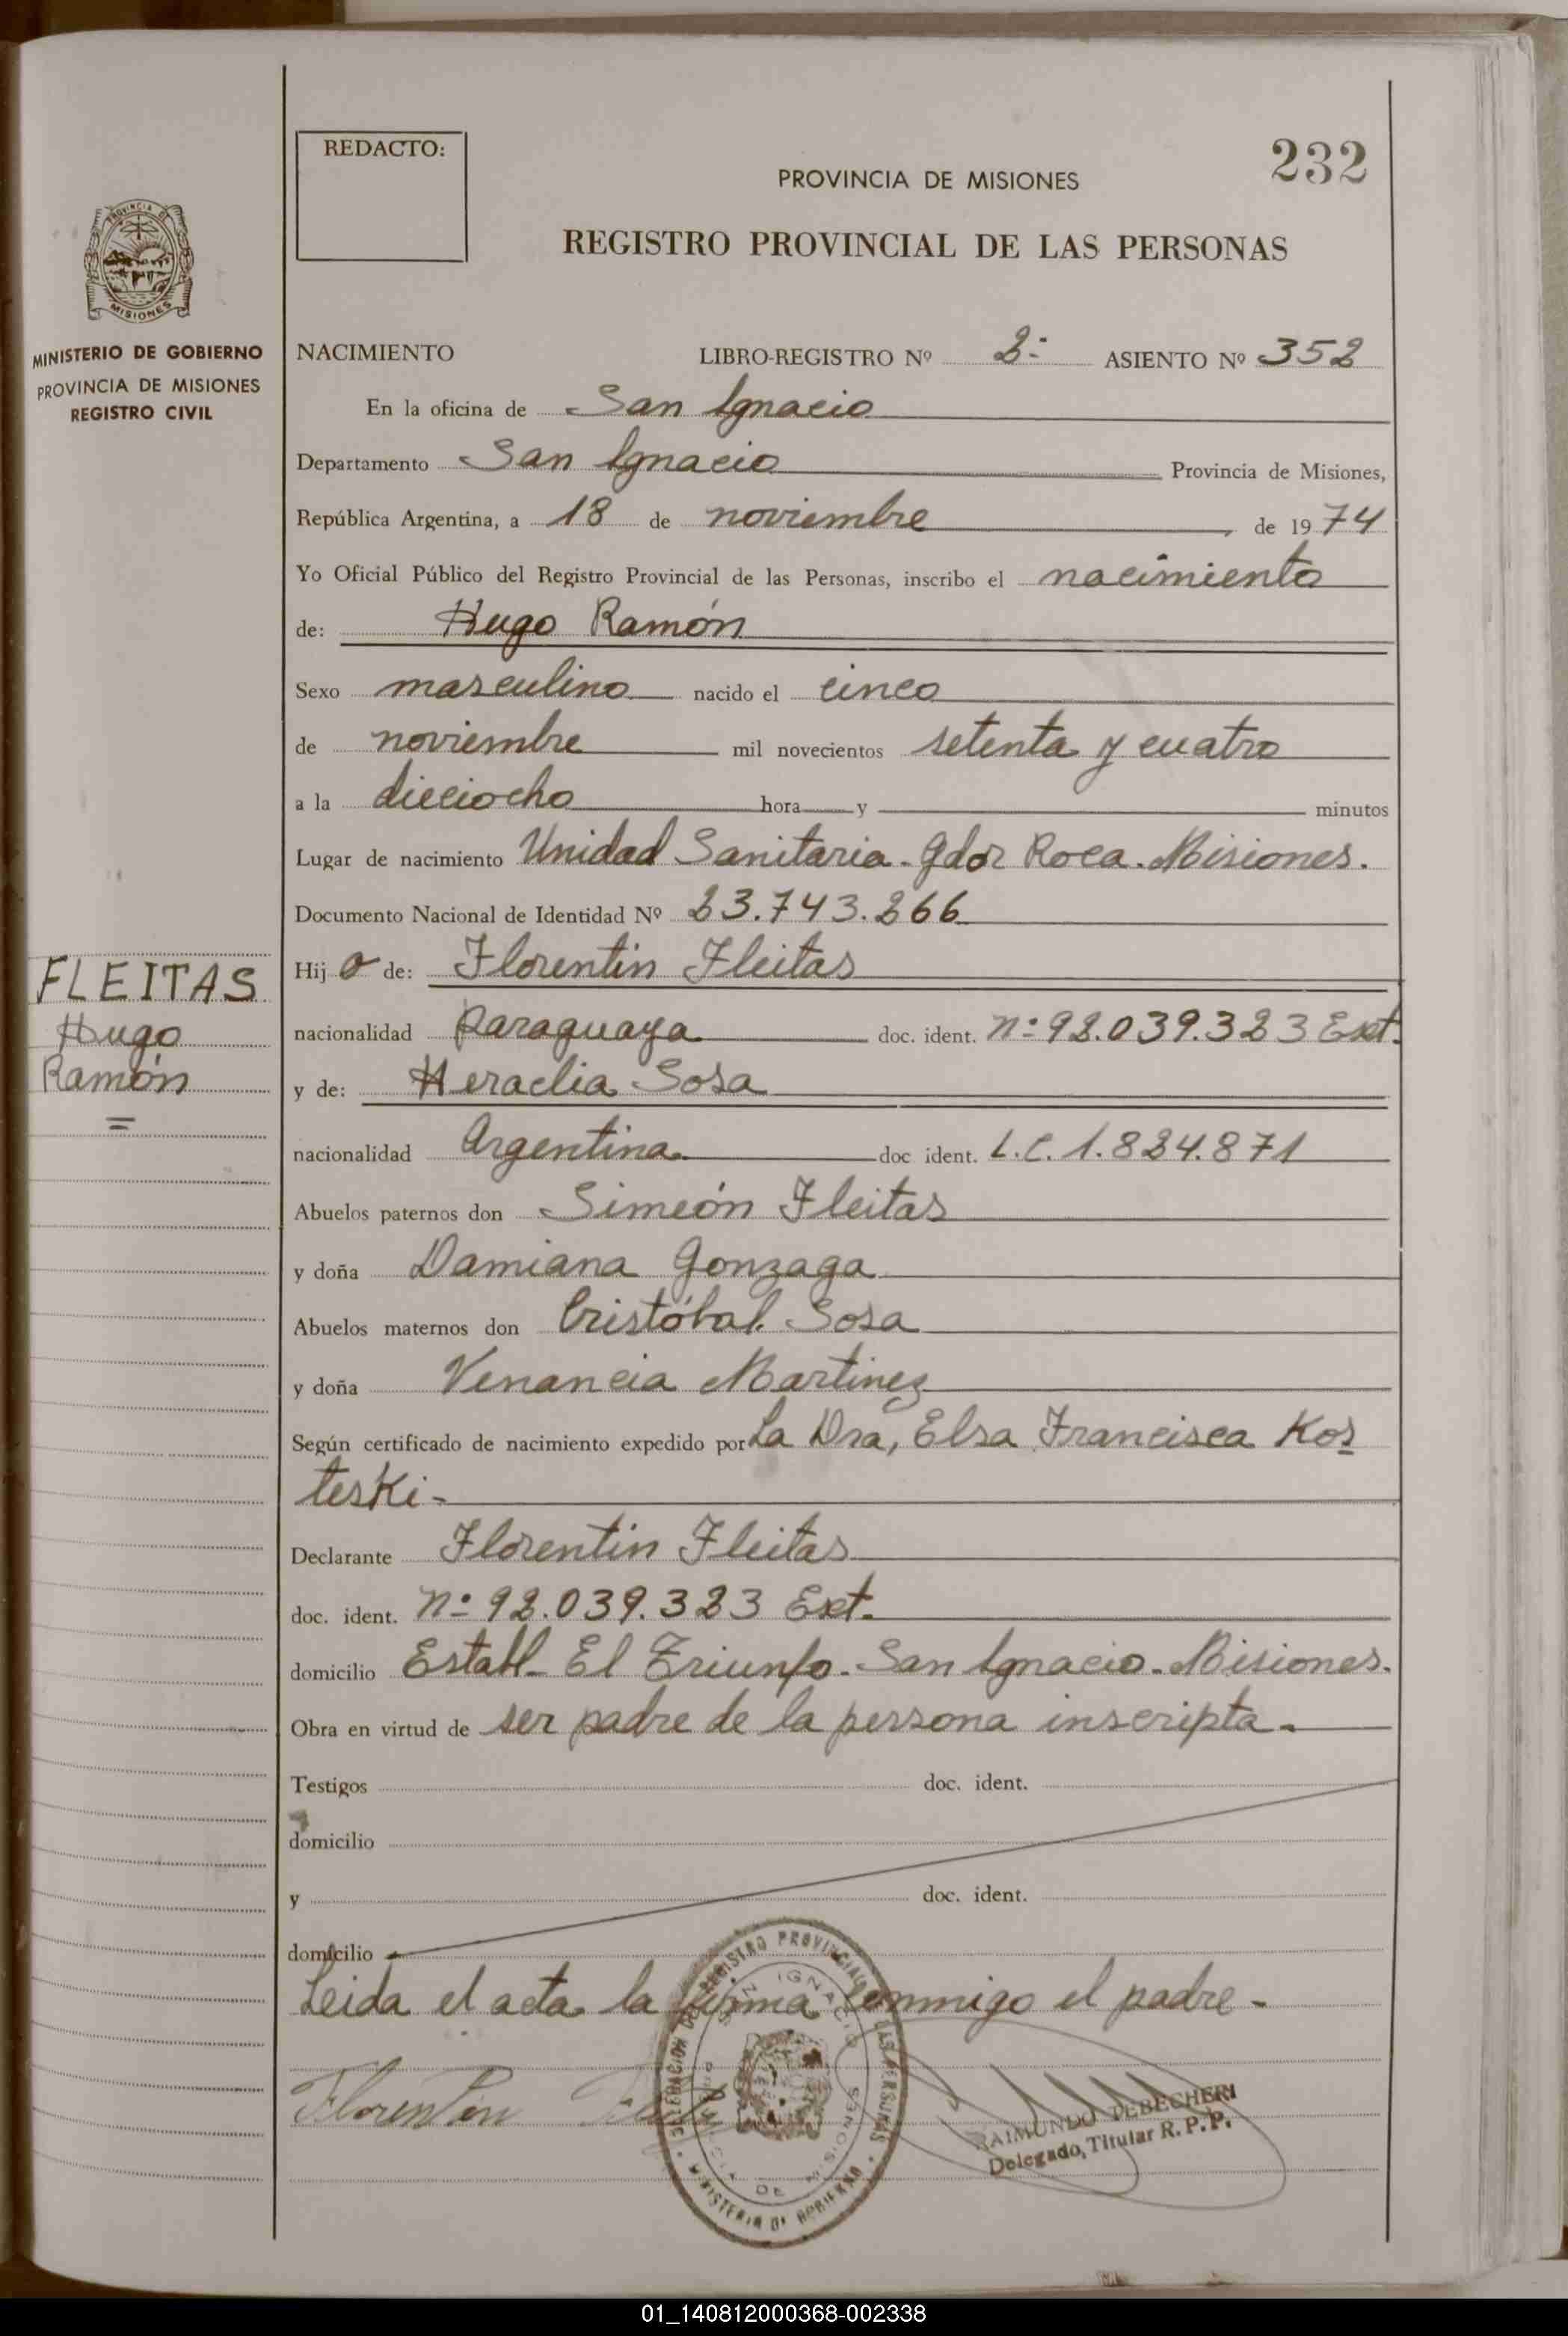 REDACTO:
232
PROVINCIA DE MISIONES
REGISTRO PROVINCIAL DE LAS PERSONAS
PROVINCIA DE
MISIONES
MINISTERIO DE GOBIERNO
PROVINCIA DE MISIONES
REGISTRO CIVIL
NACIMIENTO LIBRO-REGISTRO Nº 2- ASIENTO Nº 352
En la oficina de San Ignacio
Departamento San Ignacio Provincia de Misiones,
República Argentina, a 18 de noviembre de 1974
Yo Oficial Público del Registro Provincial de las Personas, inscribo el nacimiento
de: Hugo Ramón
Sexo masculino nacido el cinco
de noviembre mil novecientos setenta y cuatro
a la dieciocho hora y minutos
Lugar de nacimiento Unidad Sanitaria - Gdor Roca - Misiones.
Documento Nacional de Identidad Nº 23.743.266
Hijo de: Florentin Fleitas
nacionalidad Paraguaya doc. ident. Nº 92.039.323 Ext.
y de: Heraclia Sosa
nacionalidad Argentina doc ident. L.C. 1.824.871
Abuelos paternos don Simeón Fleitas
y doña Damiana Gonzaga
Abuelos maternos don Cristóbal Sosa
y doña Venancia Martinez
Según certificado de nacimiento expedido por La Dra, Elsa Francisca Kos
teski-
Declarante Florentin Fleitas
doc. ident. Nº 92.039.323 Ext.
domicilio Establ- El Triunfo- San Ignacio- Misiones.
Obra en virtud de ser padre de la persona inscripta-
Testigos doc. ident.
domicilio
y doc. ident.
domicilio
Leida el acta la firma conmigo el padre-
FLEITAS
Hugo
Ramón
=
Florentin
DELEGACION DE REGISTRO PROVINCIAL DE LAS PERSONAS
SAN IGNACIO
PROVINCIA DE MISIONES
MINISTERIO DE GOBIERNO
RAIMUNDO TEBECHERI
Delegado, Titular R. P. P.
01_140812000368-002338